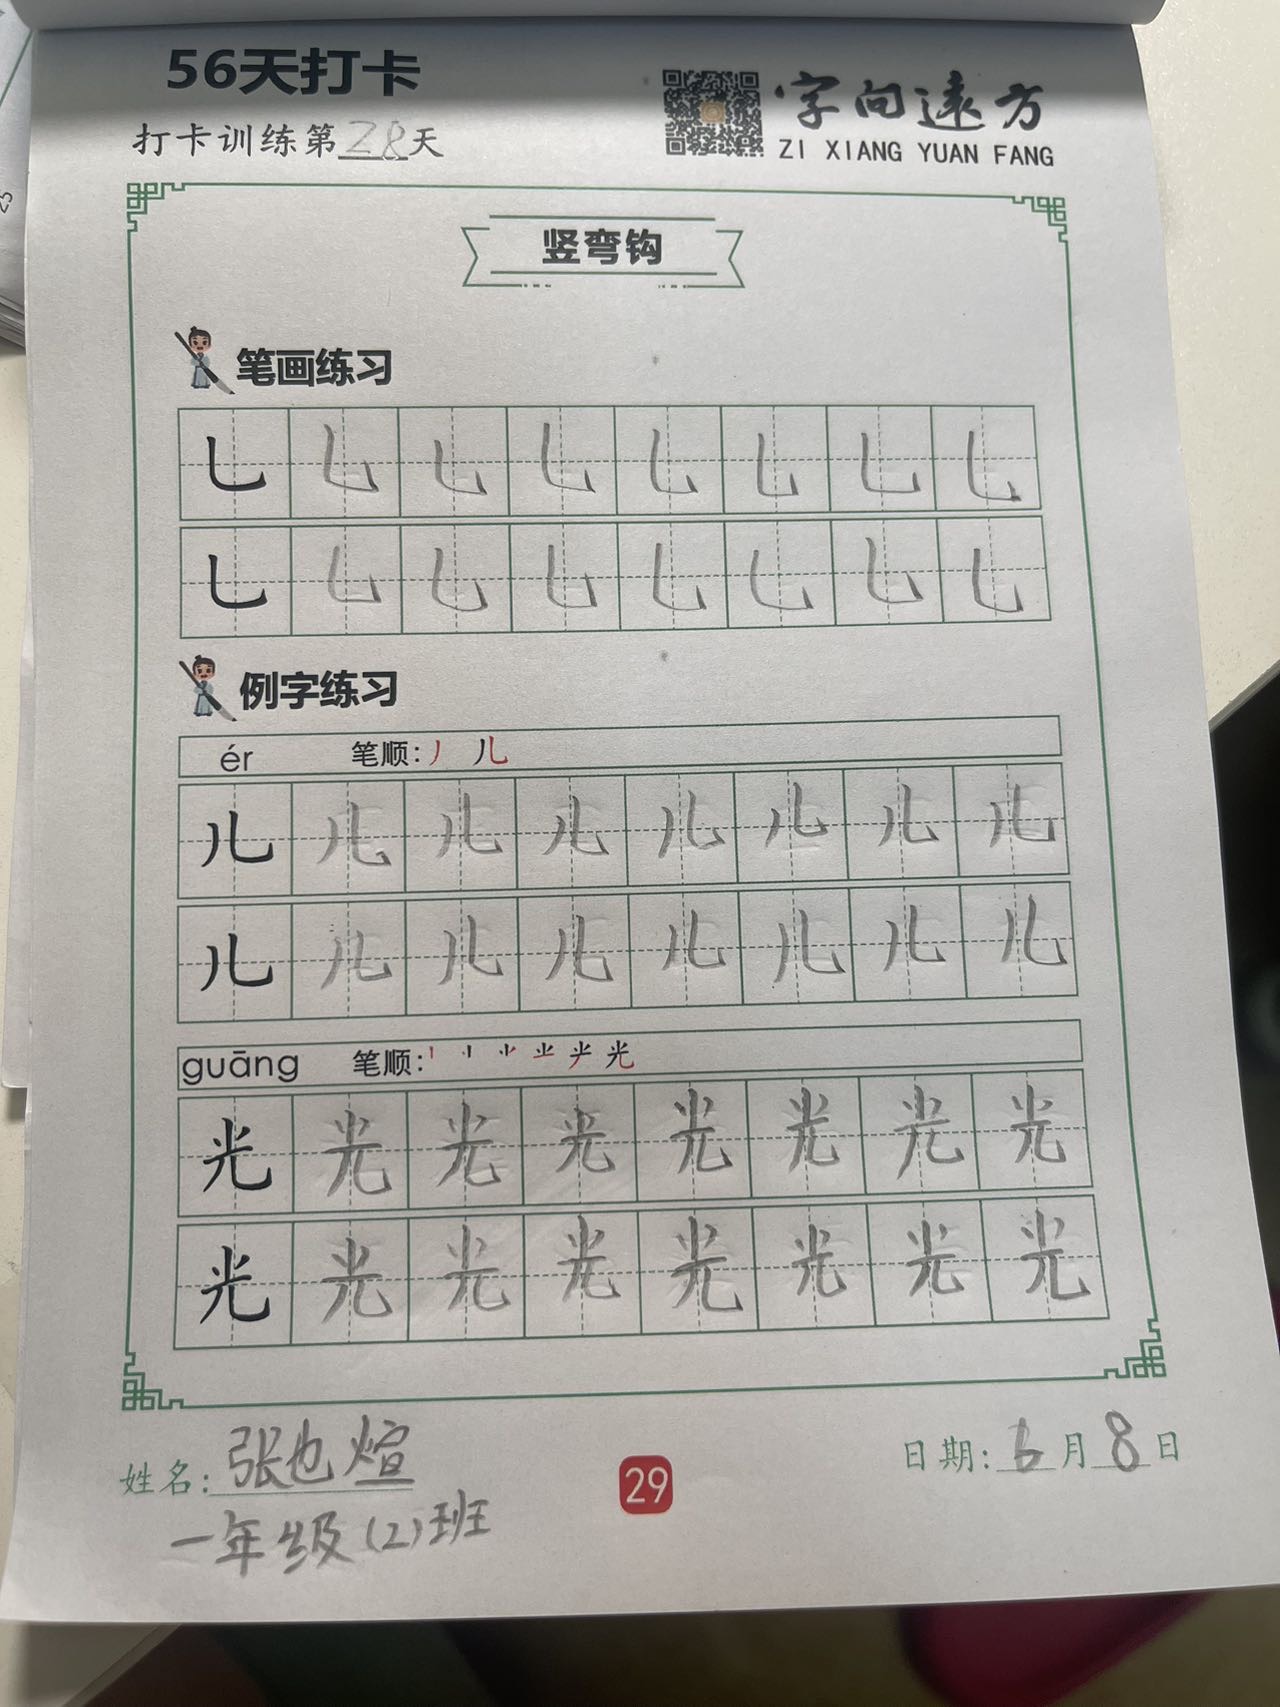 56天打卡
打卡训练第28天
字向远方
ZI XIANG YUAN FANG
竖弯钩
笔画练习
乚 乚 乚 乚 乚 乚 乚 乚
乚 乚 乚 乚 乚 乚 乚 乚
例字练习
ér 笔顺: 丿 儿
儿 儿 儿 儿 儿 儿 儿 儿
儿 儿 儿 儿 儿 儿 儿 儿
guāng 笔顺: 光
光 光 光 光 光 光 光 光
光 光 光 光 光 光 光 光
姓名: 张也煊
日期: 6月8日
一年级(2)班
29
25